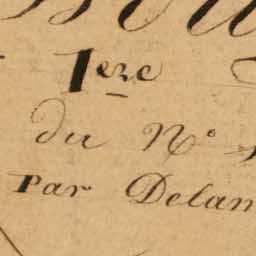 1ere
du N°
Par Delan